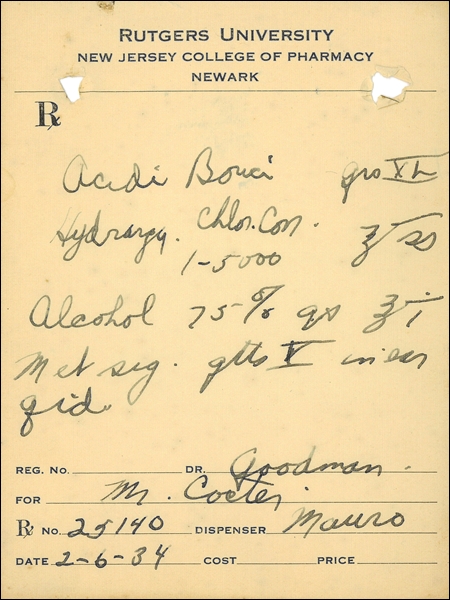 RUTGERS UNIVERSITY
NEW JERSEY COLLEGE OF PHARMACY
NEWARK
℞
Acidi Borici grs XL
Hydrargy. Chlor. Corr. ℥ ss
1-5000
Alcohol 75% qs ℥ i
M et sig. gtts V in ear
qid.
REG. NO. DR. Goodman.
FOR Mr.
℞ NO. 25140 DISPENSER Mauro
DATE 2-6-34 COST PRICE